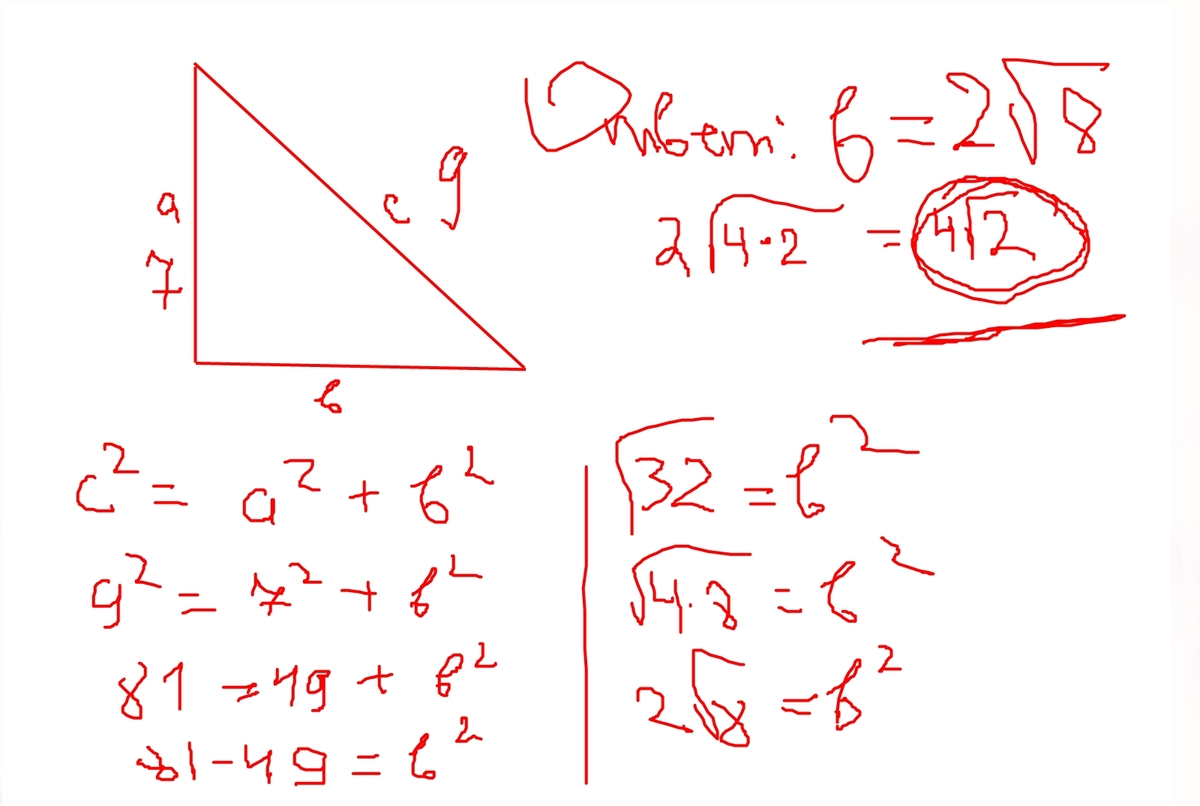 a
7
c 9
в
Ответ: в = 2√8
2√4·2 = 4√2
c² = a² + в²
9² = 7² + в²
81 = 49 + в²
81 - 49 = в²
√32 = в²
√4·8 = в²
2√8 = в²